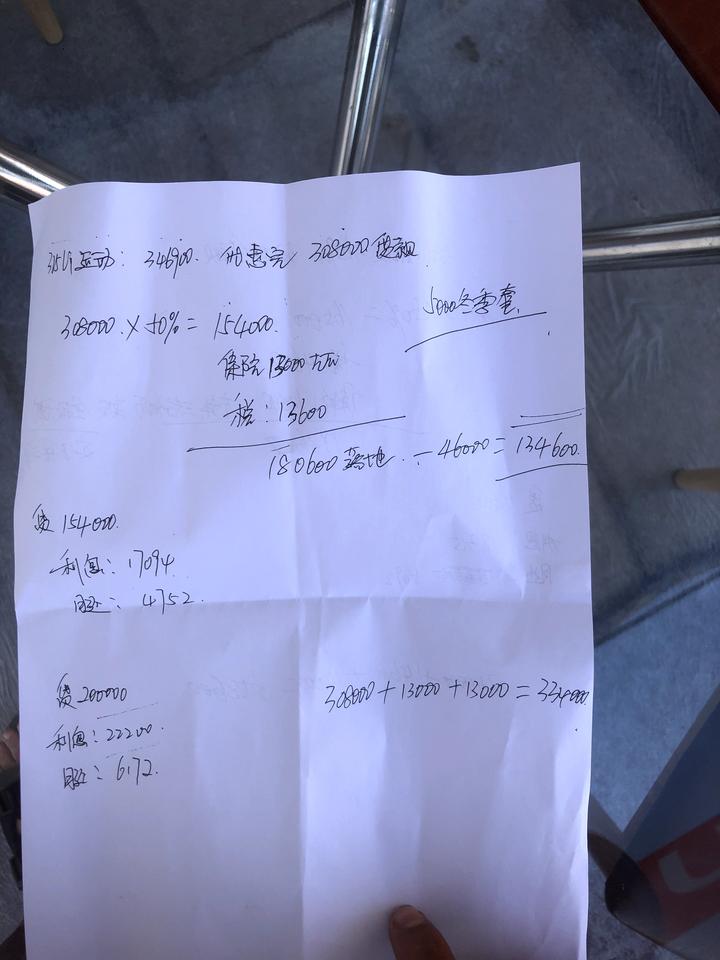 315Li 运动: 346900. 优惠完 308000 贷款
308000 × 50% = 154000.
5000冬季套
保险 13000 左右
税: 13600
180600 落地. - 46000 = 134600.
贷 154000.
利息: 17094
月还: 4752.
贷 200000
利息: 22200.
月还: 6172.
308000 + 13000 + 13000 = 334000.